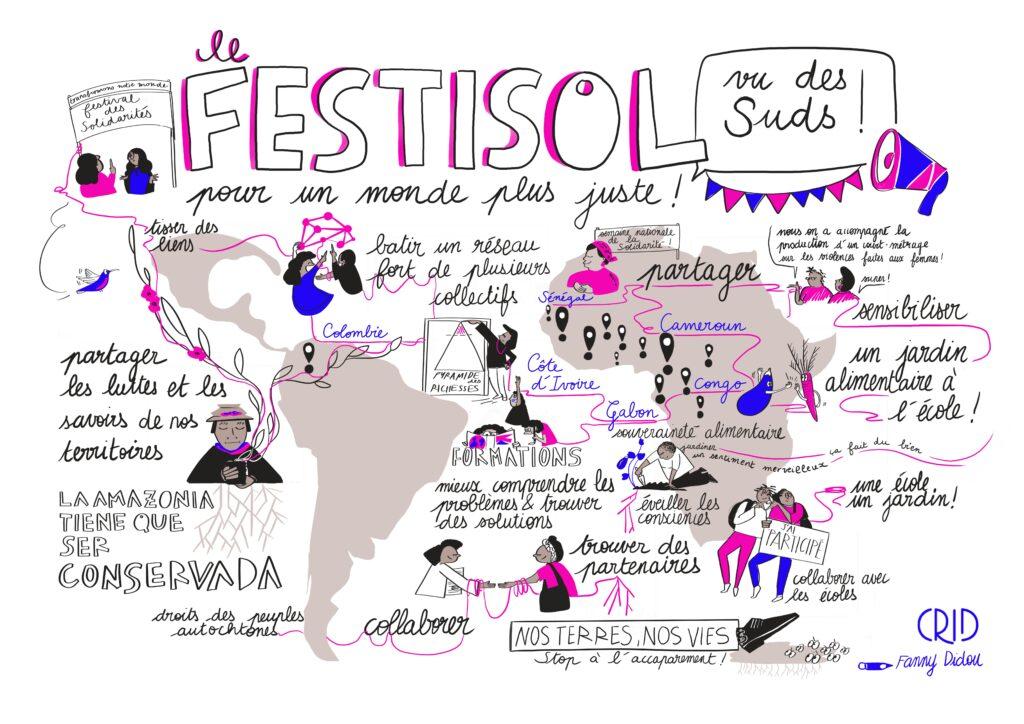 le
FESTISOL
vu des
Suds !
transformons notre monde
festival
des
Solidarités
pour un monde plus juste !
tisser des
liens
batir un réseau
fort de plusieurs
collectifs
semaine nationale
de la
Solidarité !
partager
nous on a accompagné la
production d'un court-métrage
sur les violences faites aux femmes !
super !
sensibiliser
Sénégal
Cameroun
Colombie
Côte
d'Ivoire
Congo
Gabon
PYRAMIDE
des
RICHESSES
partager
les luttes et les
savoirs de nos
territoires
un jardin
alimentaire à
l'école !
souveraineté alimentaire
jardiner
un sentiment merveilleux
ça fait du bien
FORMATIONS
mieux comprendre les
problèmes & trouver
des solutions
éveiller les
consciences
une école
un jardin !
LA AMAZONIA
TIENE QUE
SER
CONSERVADA
J'AI
PARTICIPÉ
trouver des
partenaires
collaborer avec
les écoles
droits des peuples
autochtones
collaborer
NOS TERRES, NOS VIES
Stop à l'accaparement !
CRID
Fanny Didou